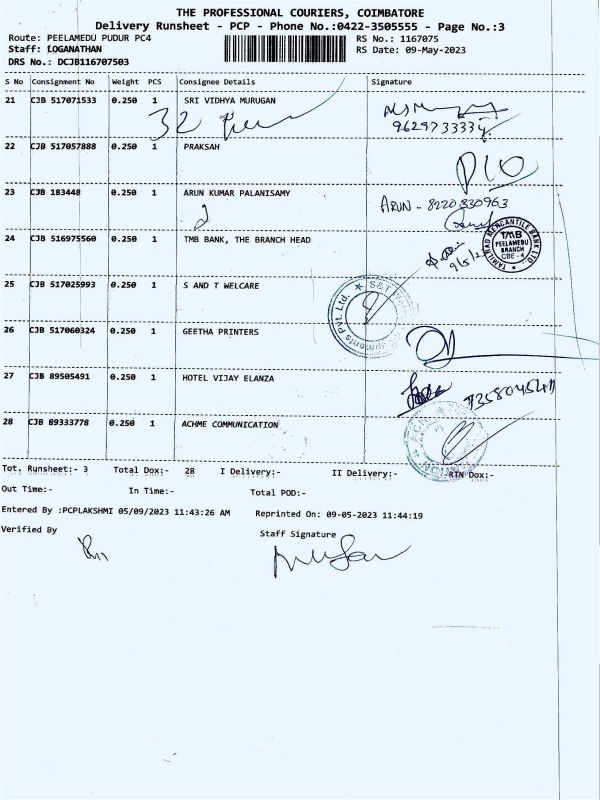 THE PROFESSIONAL COURIERS, COIMBATORE
Delivery Runsheet - PCP - Phone No.:0422-3505555 - Page No.:3
Route: PEELAMEDU PUDUR PC4 RS No.: 1167075
Staff: LOGANATHAN RS Date: 09-May-2023
DRS No.: DCJB116707503
S No Consignment No Weight PCS Consignee Details Signature
21 CJB 517071533 0.250 1 SRI VIDHYA MURUGAN
32
22 CJB 517057888 0.250 1 PRAKSAH
23 CJB 183448 0.250 1 ARUN KUMAR PALANISAMY ARUN - 8220330963
24 CJB 516975560 0.250 1 TMB BANK, THE BRANCH HEAD
TAMILNAD MERCANTILE BANK LTD.
TMB
PEELAMEDU
BRANCH
CBE - 4
25 CJB 517025993 0.250 1 S AND T WELCARE
S&T
Pvt. Ltd.
26 CJB 517060324 0.250 1 GEETHA PRINTERS
27 CJB 89505491 0.250 1 HOTEL VIJAY ELANZA
28 CJB 89333778 0.250 1 ACHME COMMUNICATION
Tot. Runsheet:- 3 Total Dox:- 28 I Delivery:- II Delivery:- RTN Dox:-
Out Time:- In Time:- Total POD:-
Entered By :PCPLAKSHMI 05/09/2023 11:43:26 AM Reprinted On: 09-05-2023 11:44:19
Verified By Staff Signature